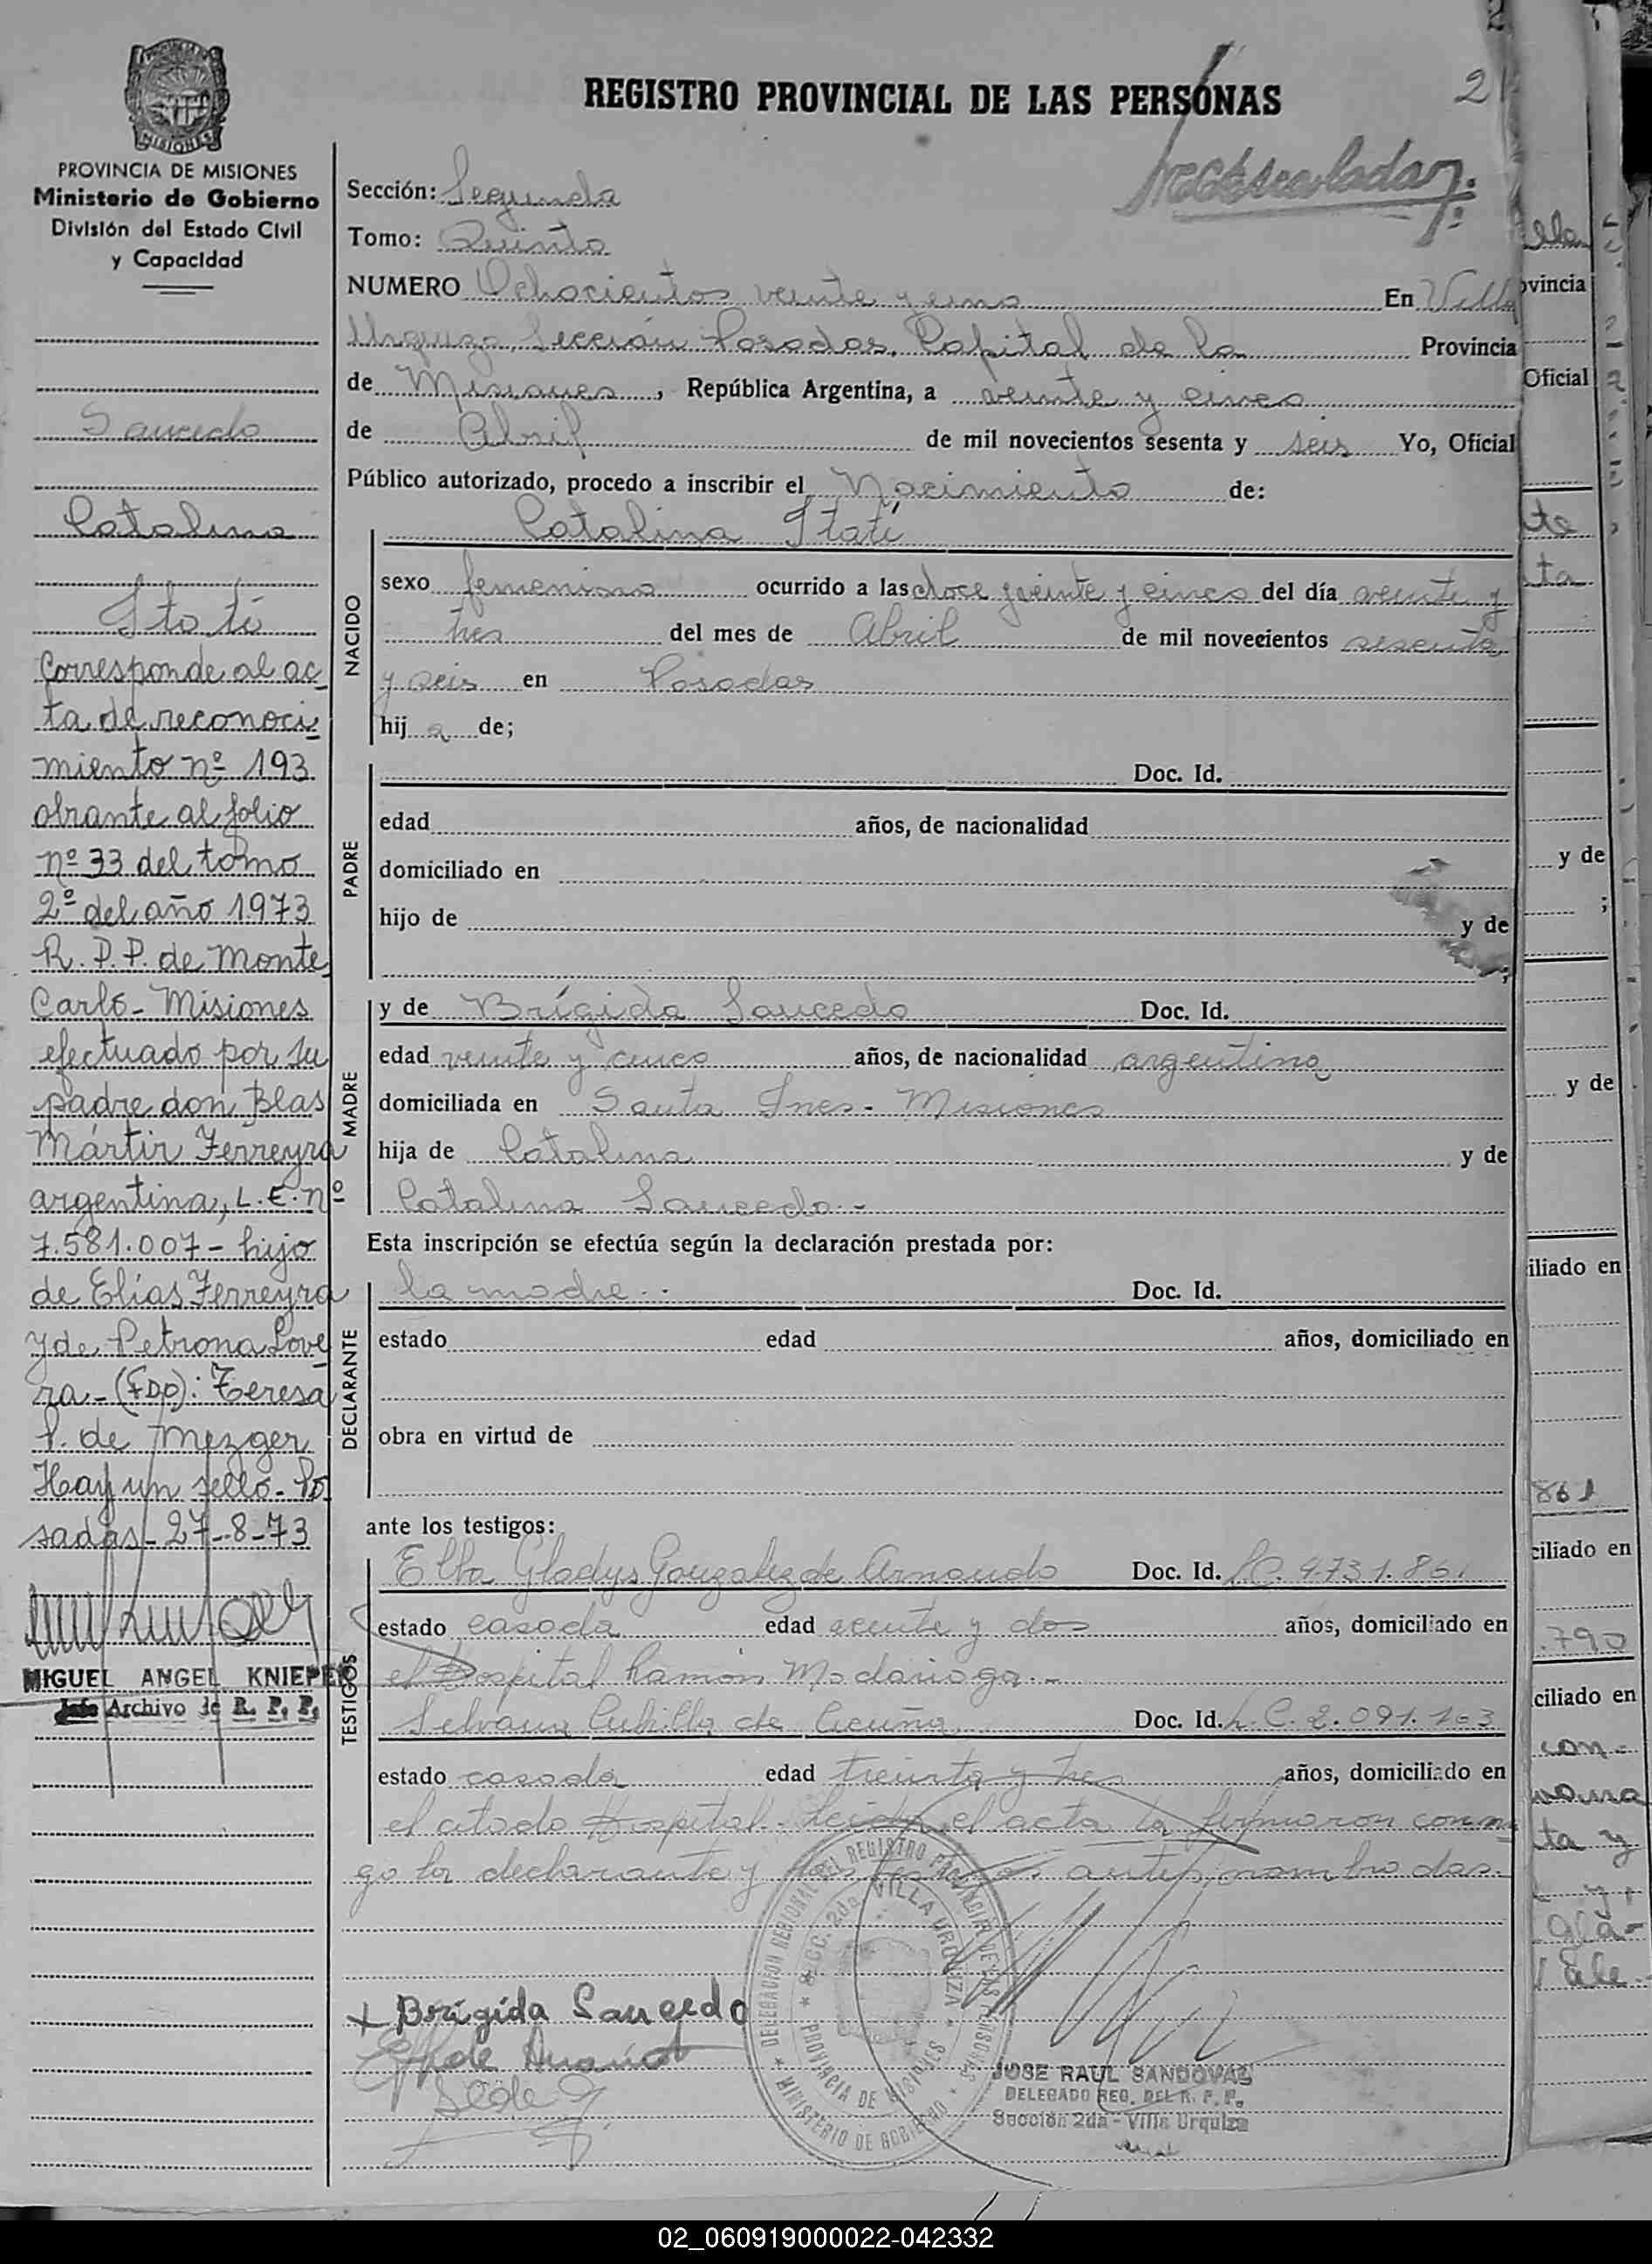 REGISTRO PROVINCIAL DE LAS PERSONAS
21
PROVINCIA DE MISIONES
Ministerio de Gobierno
División del Estado Civil
y Capacidad
Saucedo
Catalina
Itatí
Corresponde al ac
ta de reconoci
miento nº 193
obrante al folio
nº 33 del tomo
2º del año 1973
R. P. P. de Monte
Carlo - Misiones
efectuado por su
padre don Blas
Mártir Ferreyra
argentina, L.E. nº
7.581.007 - hijo
de Elías Ferreyra
y de Petrona Love
ra - (FDO): Teresa
P. de Mezger
Hay un sello - Po
sadas - 27-8-73
MIGUEL ANGEL KNIEPER
Jefe Archivo de R. P. P.
Sección: Segunda
Tomo: Quinto
NUMERO Ochocientos veinte y uno En Villa
Urquiza, Sección Posadas, Capital de la Provincia
de Misiones, República Argentina, a veinte y cinco
de Abril de mil novecientos sesenta y seis Yo, Oficial
Público autorizado, procedo a inscribir el Nacimiento de:
NACIDO
Catalina Itatí
sexo femenino ocurrido a las doce y veinte y cinco del día veinte y
tres del mes de Abril de mil novecientos sesenta
y seis en Posadas
hij a de;
PADRE
Doc. Id.
edad años, de nacionalidad
domiciliado en
hijo de y de
;
MADRE
y de Brígida Saucedo Doc. Id.
edad veinte y cinco años, de nacionalidad argentina
domiciliada en Santa Ines - Misiones
hija de Catalina y de
Catalina Saucedo.-
Esta inscripción se efectúa según la declaración prestada por:
DECLARANTE
la madre.. Doc. Id.
estado edad años, domiciliado en
obra en virtud de
ante los testigos:
TESTIGOS
Elba Gladys Gonzalez de Arnaudo Doc. Id. L.C. 4.731.861
estado casada edad veinte y dos años, domiciliado en
el Hospital Ramón Madariaga.-
Selvana Cubilla de Acuña Doc. Id. L.C. 2.091.103
estado casada edad treinta y tres años, domiciliado en
el citado Hospital. Leída el acta la firmaron conmi
go la declarante y los testigos antes nombradas.
+ Brígida Saucedo
DELEGACION REGIONAL DEL REGISTRO PROVINCIAL DE LAS PERSONAS
SECC. 2da. VILLA URQUIZA
PROVINCIA DE MISIONES
MINISTERIO DE GOBIERNO
JOSE RAUL SANDOVAL
DELEGADO REG. DEL R. P. P.
Sección 2da - Villa Urquiza
ovincia
Oficial
te
ta
y de
;
y de
iliado en
861
ciliado en
.790
ciliado en
con-
ta y
02_060919000022-042332